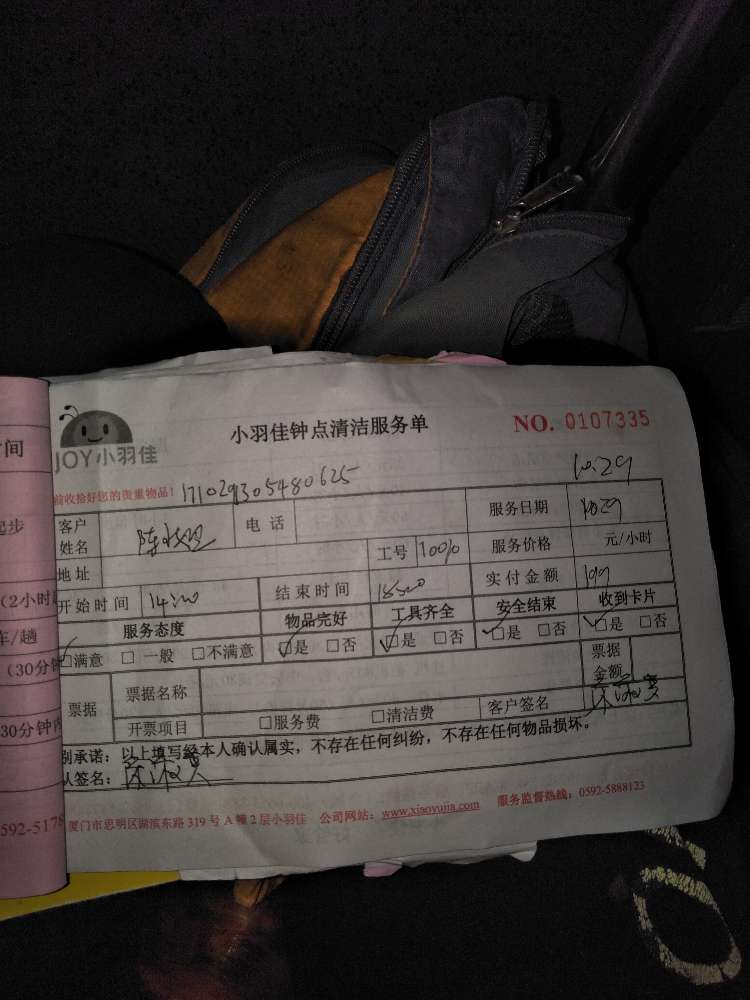 小羽佳钟点清洁服务单
NO. 0107335
JOY小羽佳
前收拾好您的贵重物品! 171029305480625
10.29
客户姓名 电话 服务日期 1029
地址 工号 100% 服务价格 元/小时
开始时间 14:00 结束时间 18:00 实付金额 199
服务态度 物品完好 工具齐全 安全结束 收到卡片
☑满意 □ 一般 □不满意 ☑是 □否 ☑是 □否 ☑是 □否 ☑是 □否
票据 票据名称 票据金额
开票项目 □服务费 □清洁费 客户签名
别承诺:以上填写经本人确认属实,不存在任何纠纷,不存在任何物品损坏。
认签名:
厦门市思明区湖滨东路 319 号 A 幢 2 层小羽佳 公司网站:www.xiaoyujia.com 服务监督热线:0592-5888123
间
起步
(2小时
车/趟
(30分钟
30分钟内
592-5178